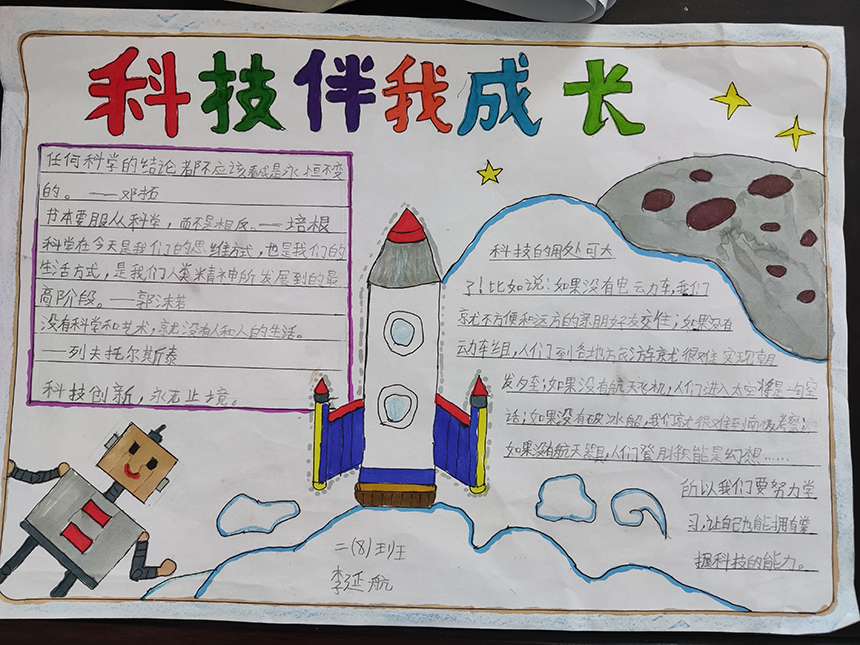 科技伴我成长
任何科学的结论都不应该看成是永恒不变
的。——邓拓
书本要服从科学，而不是相反。——培根
科学在今天是我们的思维方式，也是我们的
生活方式，是我们人类精神所发展到的最
高阶段。——郭沫若
没有科学和艺术，就没有人和人的生活。
——列夫托尔斯泰
科技创新，永无止境。
科技的用处可大
了！比如说：如果没有电动车，我们
就不方便和远方的亲朋好友交往；如果没有
动车组，人们到各地方去游玩就很难实现朝
发夕至；如果没有航天飞机，人们进入太空将是一句空
话；如果没有破冰船，我们就很难到南极考察；
如果没有航天器，人们登月就能是幻想……
所以我们要努力学
习，让自己也能拥有掌
握科技的能力。
二(8)班
李延航